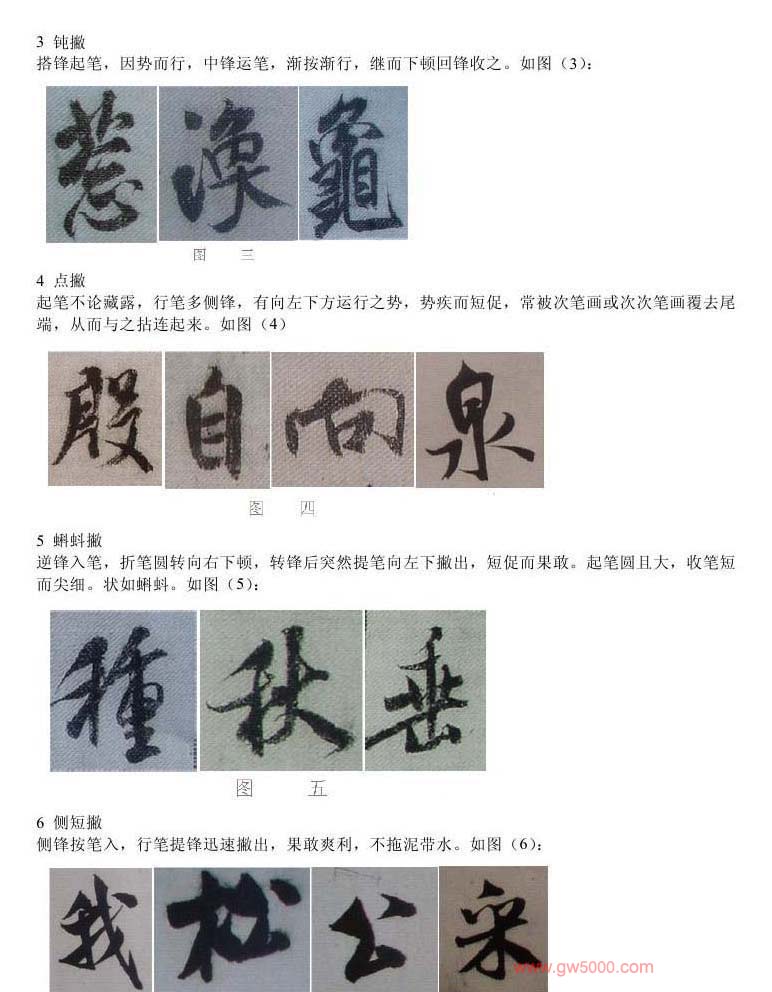 3 钝撇
搭锋起笔，因势而行，中锋运笔，渐按渐行，继而下顿回锋收之。如图（3）：
惹 渙 龜
图 三
4 点撇
起笔不论藏露，行笔多侧锋，有向左下方运行之势，势疾而短促，常被次笔画或次次笔画覆去尾
端，从而与之拈连起来。如图（4）
殷 自 向 泉
图 四
5 蝌蚪撇
逆锋入笔，折笔圆转向右下顿，转锋后突然提笔向左下撇出，短促而果敢。起笔圆且大，收笔短
而尖细。状如蝌蚪。如图（5）：
種 秋 垂
图 五
6 侧短撇
侧锋按笔入，行笔提锋迅速撇出，果敢爽利，不拖泥带水。如图（6）：
我 松 公 采
www.gw5000.com